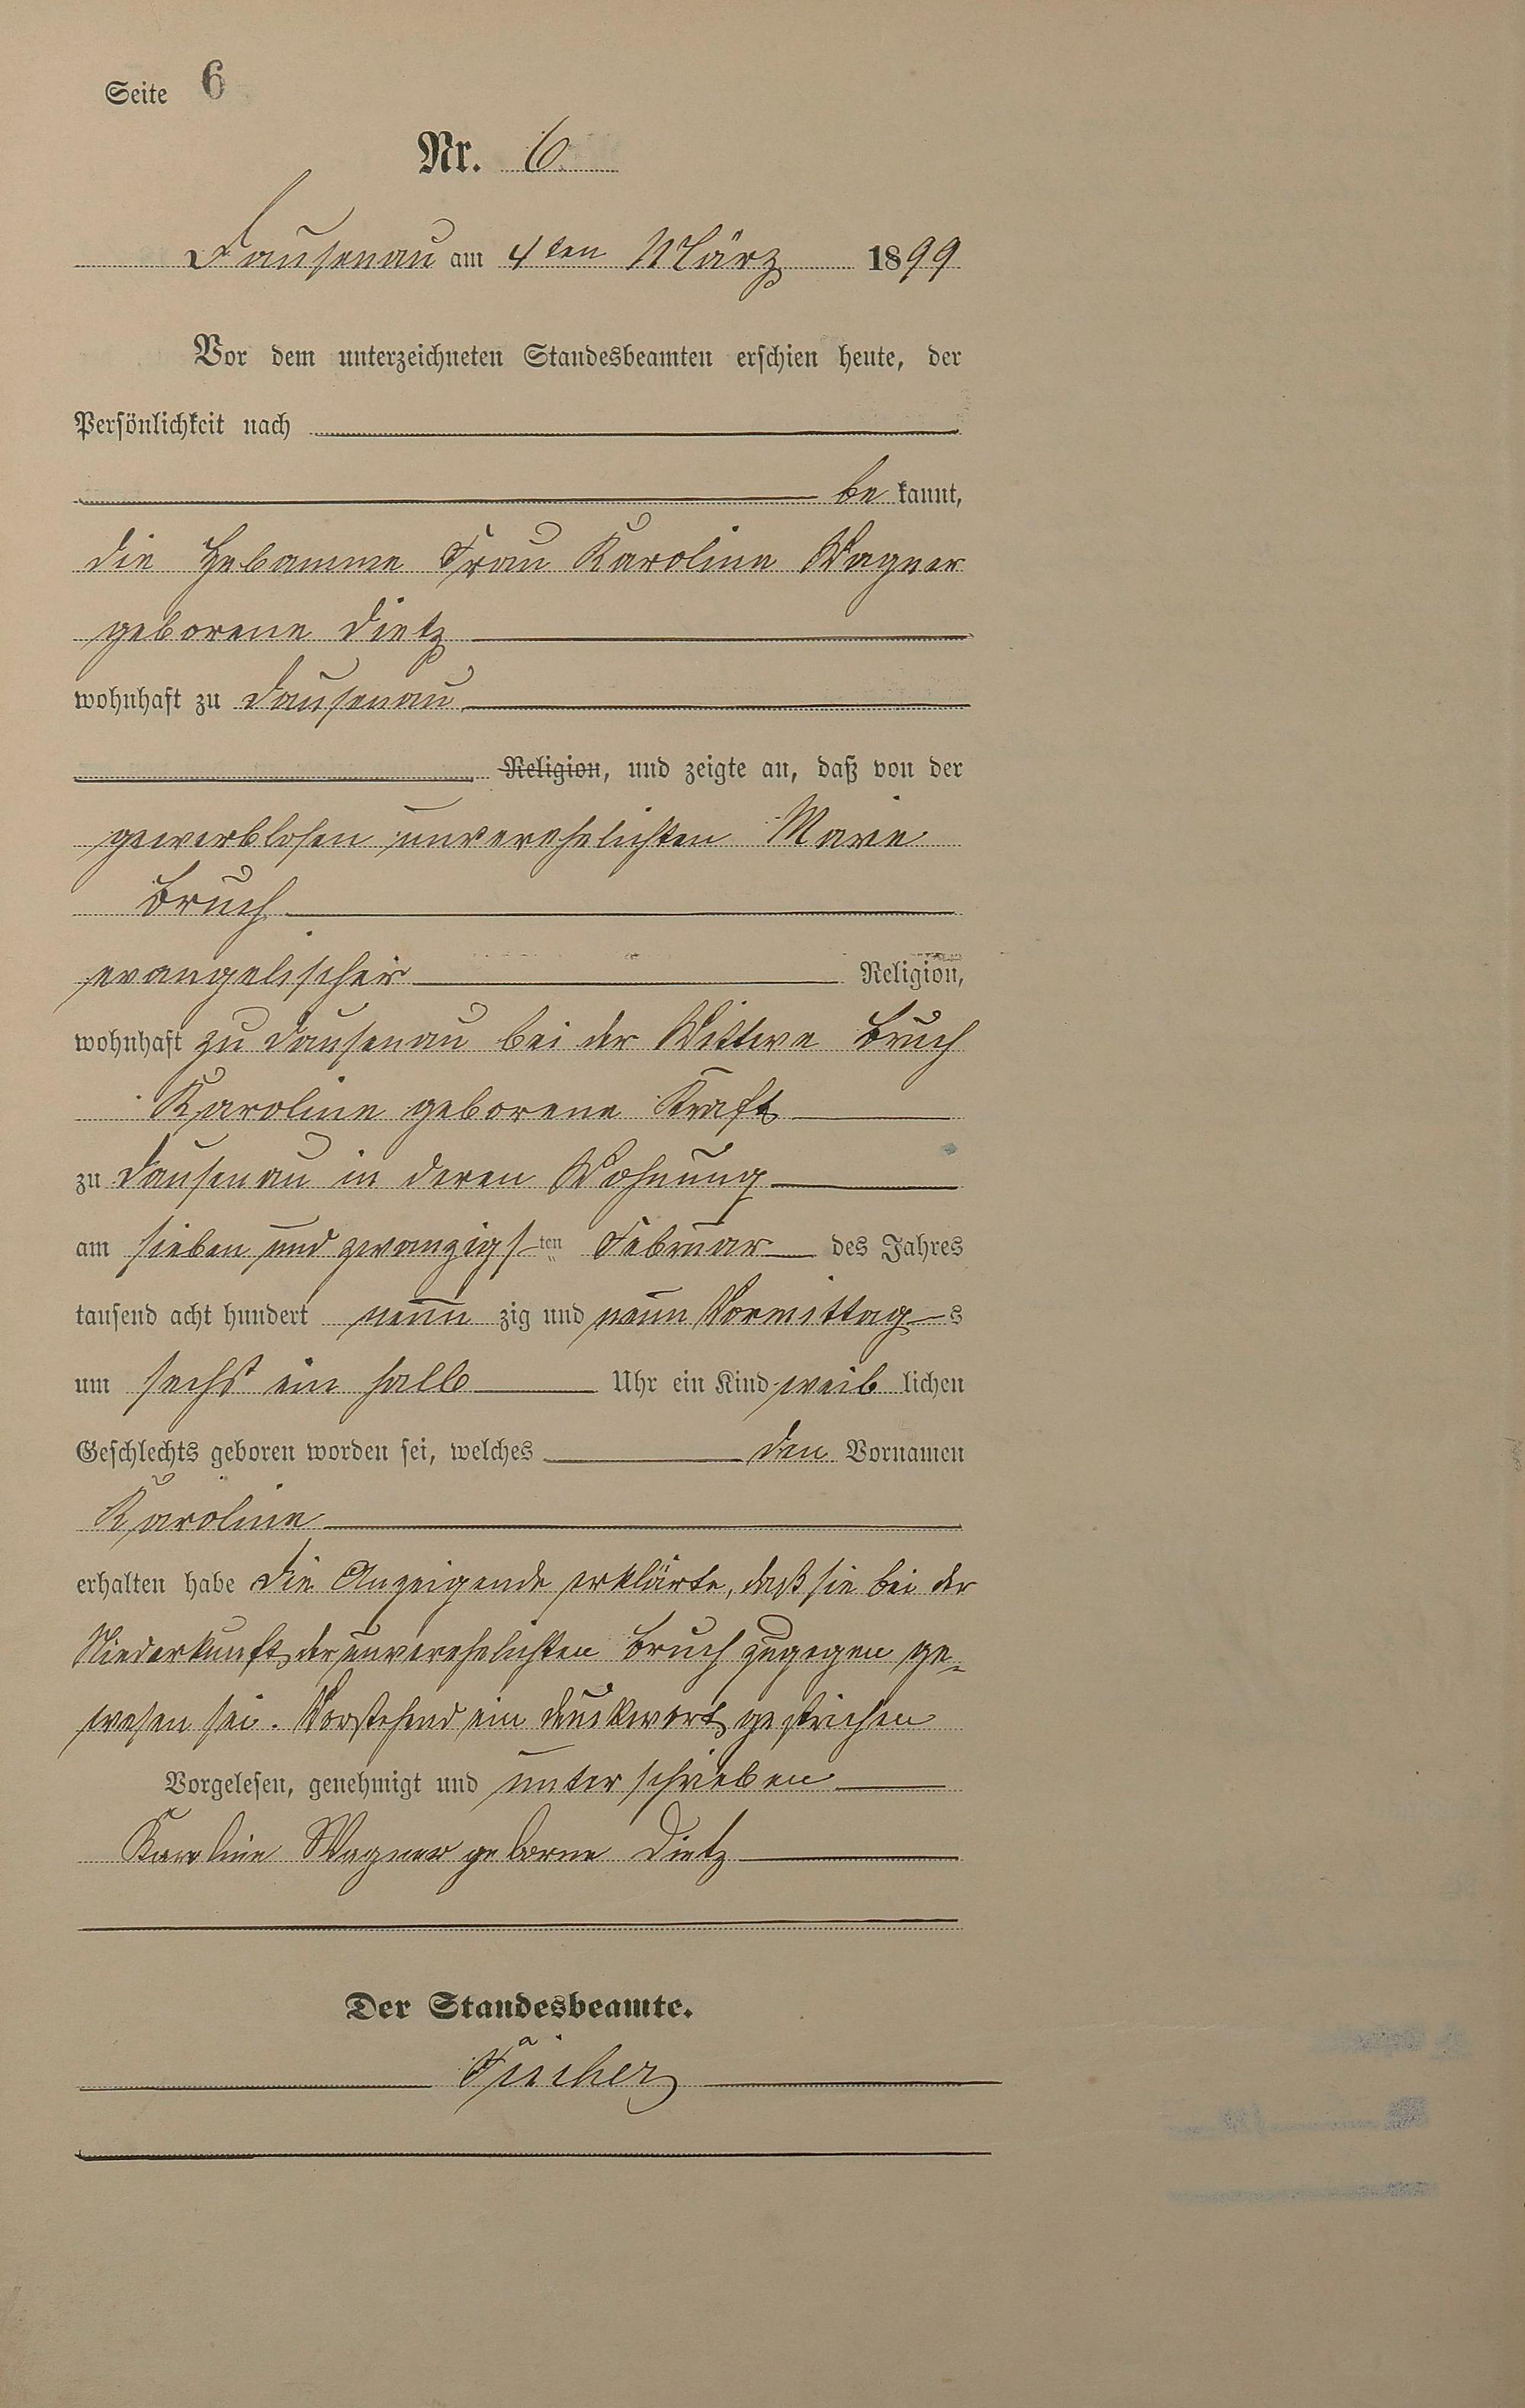 Seite 6
Nr. 6.
Dausenau am 4ten März 1899
Vor dem unterzeichneten Standesbeamten erschien heute, der
Persönlichkeit nach
be kannt,
die Hebamme Frau Karoline Wagner
geborene Dietz
wohnhaft zu Dausenau
Religion, und zeigte an, daß von der
gewerblosen unverehelichten Marie
Bruch
evangelischer Religion,
wohnhaft zu Dausenau bei der Wittwe Bruch
Karoline geborene Kraft
zu Dausenau in deren Wohnung
am sieben und zwanzigsten Februar des Jahres
tausend acht hundert neun zig und neun Vormittags
um sechs ein halb Uhr ein Kind weib lichen
Geschlechts geboren worden sei, welches den Vornamen
Karoline
erhalten habe Die Anzeigende erklärte, daß sie bei der
Niederkunft der unverehelichten Bruch zugegen ge-
wesen sei. Vorstehend ein Druckwort gestrichen
Vorgelesen, genehmigt und unterschrieben
Karoline Wagner geborne Dietz
Der Standesbeamte.